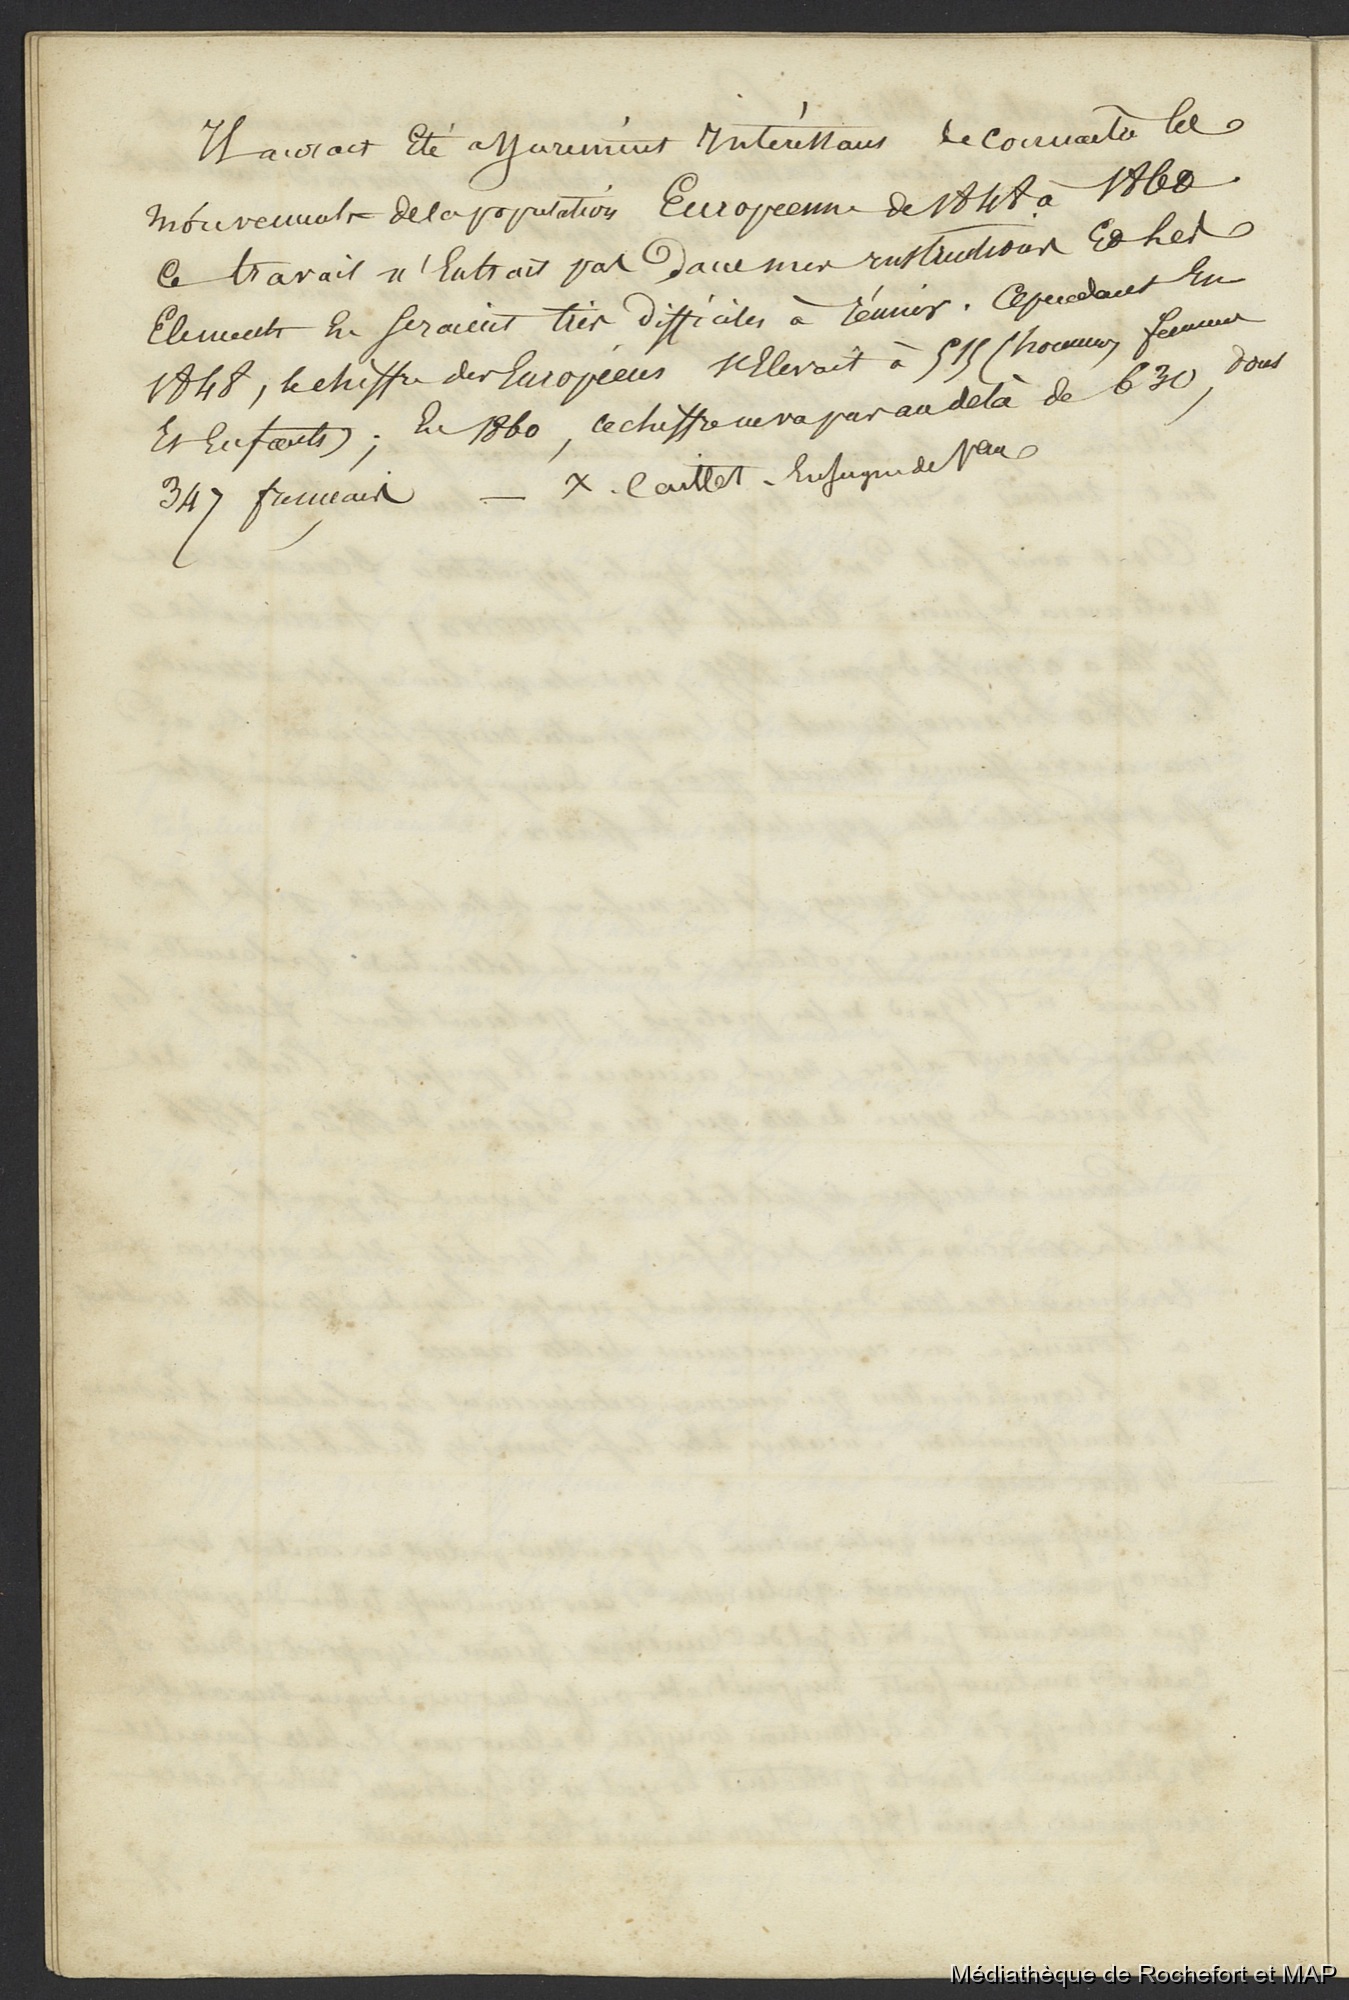 Il aurait été assurément intéressant de connaitre les
mouvements de la population Européenne de 1848 à 1860
Ce travail n'entrait pas dans mes instructions et les
Elements en seraient très difficiles à réunir. Cependant en
1848, le chiffre des Européens s'elevait à 515 (hommes, femmes
et enfants); en 1860, ce chiffre ne va pas au delà de 630, dont
347 français — X. Caillet. Enseigne de Vau
Médiathèque de Rochefort et MAP